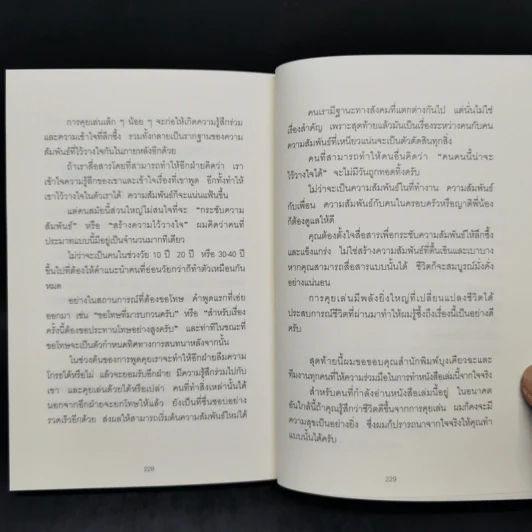 การคุยเล่นเล็ก ๆ น้อย ๆ จะก่อให้เกิดความรู้สึกร่วม
และความเข้าใจที่ลึกซึ้ง รวมทั้งกลายเป็นรากฐานของความ
สัมพันธ์ที่ไว้วางใจกันในภายหลังอีกด้วย
ถ้าเราสื่อสารโดยที่สามารถทำให้อีกฝ่ายคิดว่า เรา
เข้าใจความรู้สึกของเขาและเข้าใจเรื่องที่เขาพูด อีกทั้งทำให้
เขาไว้วางใจในตัวเราได้ ความสัมพันธ์ก็จะแน่นแฟ้นขึ้น
แต่คนสมัยนี้ส่วนใหญ่ไม่สนใจที่จะ "กระชับความ
สัมพันธ์" หรือ "สร้างความไว้วางใจ" ผมคิดว่าคน
ประเภทแบบนี้มีอยู่เป็นจำนวนมากทีเดียว
ไม่ว่าจะเป็นคนในช่วงวัย 10 ปี 20 ปี หรือ 30-40 ปี
ขึ้นไปที่ต้องให้คำแนะนำคนที่อ่อนวัยกว่าก็ทำตัวเหมือนกัน
หมด
อย่างในสถานการณ์ที่ต้องขอโทษ คำพูดแรกที่เอ่ย
ออกมา เช่น "ขอโทษที่มารบกวนครับ" หรือ "สำหรับเรื่อง
ครั้งนี้ต้องขอประทานโทษอย่างสูงครับ" และท่าทีในขณะที่
ขอโทษจะเป็นตัวกำหนดทิศทางการสนทนาหลังจากนั้น
ในช่วงต้นของการพูดคุยเราจะทำให้อีกฝ่ายลืมความ
โกรธได้หรือไม่ แล้วจะยอมรับอีกฝ่าย มีความรู้สึกร่วมไปกับ
เขา และคุยเล่นด้วยได้หรือเปล่า คนที่ทำสิ่งเหล่านั้นได้
นอกจากอีกฝ่ายจะยกโทษให้แล้ว ยังเป็นที่ชื่นชอบอย่าง
รวดเร็วอีกด้วย ส่งผลให้สามารถเริ่มต้นความสัมพันธ์ใหม่ได้
228
คนเรามีฐานะทางสังคมที่แตกต่างกันไป แต่นั่นไม่ใช่
เรื่องสำคัญ เพราะสุดท้ายแล้วมันเป็นเรื่องระหว่างคนกับคน
ความสัมพันธ์ที่เหนียวแน่นจะเป็นตัวตัดสินทุกสิ่ง
คนที่สามารถทำให้คนอื่นคิดว่า "คนคนนี้น่าจะ
ไว้วางใจได้" จะไม่มีวันถูกทอดทิ้งครับ
ไม่ว่าจะเป็นความสัมพันธ์ในที่ทำงาน ความสัมพันธ์
กับเพื่อน ความสัมพันธ์กับคนในครอบครัวหรือญาติพี่น้อง
ก็ต้องดูแลให้ดี
คุณต้องตั้งใจสื่อสารเพื่อกระชับความสัมพันธ์ให้ลึกซึ้ง
และแข็งแกร่ง ไม่ใช่สร้างความสัมพันธ์ที่ตื้นเขินและเบาบาง
หากคุณสามารถสื่อสารแบบนั้นได้ ชีวิตก็จะสมบูรณ์มั่งคั่ง
อย่างแน่นอน
การคุยเล่นมีพลังยิ่งใหญ่ที่เปลี่ยนแปลงชีวิตได้
ประสบการณ์ชีวิตที่ผ่านมาทำให้ผมรู้ซึ้งถึงเรื่องนี้เป็นอย่างดี
ครับ
สุดท้ายนี้ผมขอขอบคุณสำนักพิมพ์บุงเคียวฉะและ
ทีมงานทุกคนที่ให้ความร่วมมือในการทำหนังสือเล่มนี้จากใจจริง
สำหรับคนที่กำลังอ่านหนังสือเล่มนี้อยู่ ในอนาคต
อันใกล้นี้ถ้าคุณรู้สึกว่าชีวิตดีขึ้นจากการคุยเล่น ผมก็คงจะมี
ความสุขเป็นอย่างยิ่ง ซึ่งผมก็ปรารถนาจากใจจริงให้คุณทำ
แบบนั้นได้ครับ
229